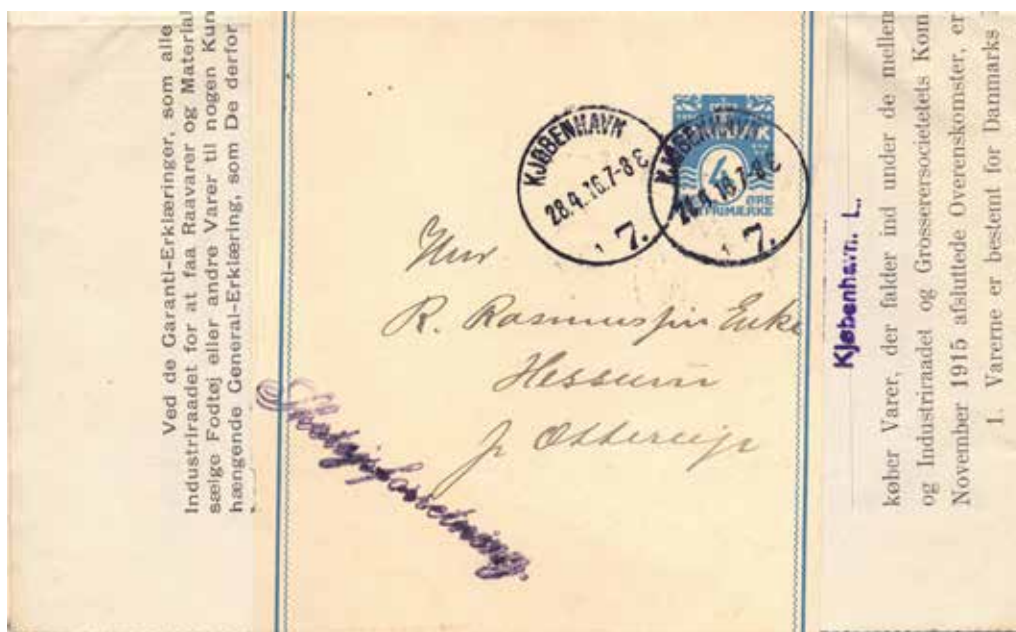 Ved de Garanti-Erklæringer, som alle
Industriraadet for at faa Raavarer og Material
sælge Fodtøj eller andre Varer til nogen Kun
hængende General-Erklæring, som De derfor
KJØBENHAVN
28.9.16.7-8 E
1 7.
KJØBENHAVN
28.9.16.7-8 E
1 7.
4
ØRE
R. Rasmussen Enke
Hessum
pr Otterup
Skotøjsforretning.
Kjøbenhavn. L.
køber Varer, der falder ind under de mellem
og Industriraadet og Grosserersocietetets Kom
November 1915 afsluttede Overenskomster, er
1. Varerne er bestemt for Danmarks